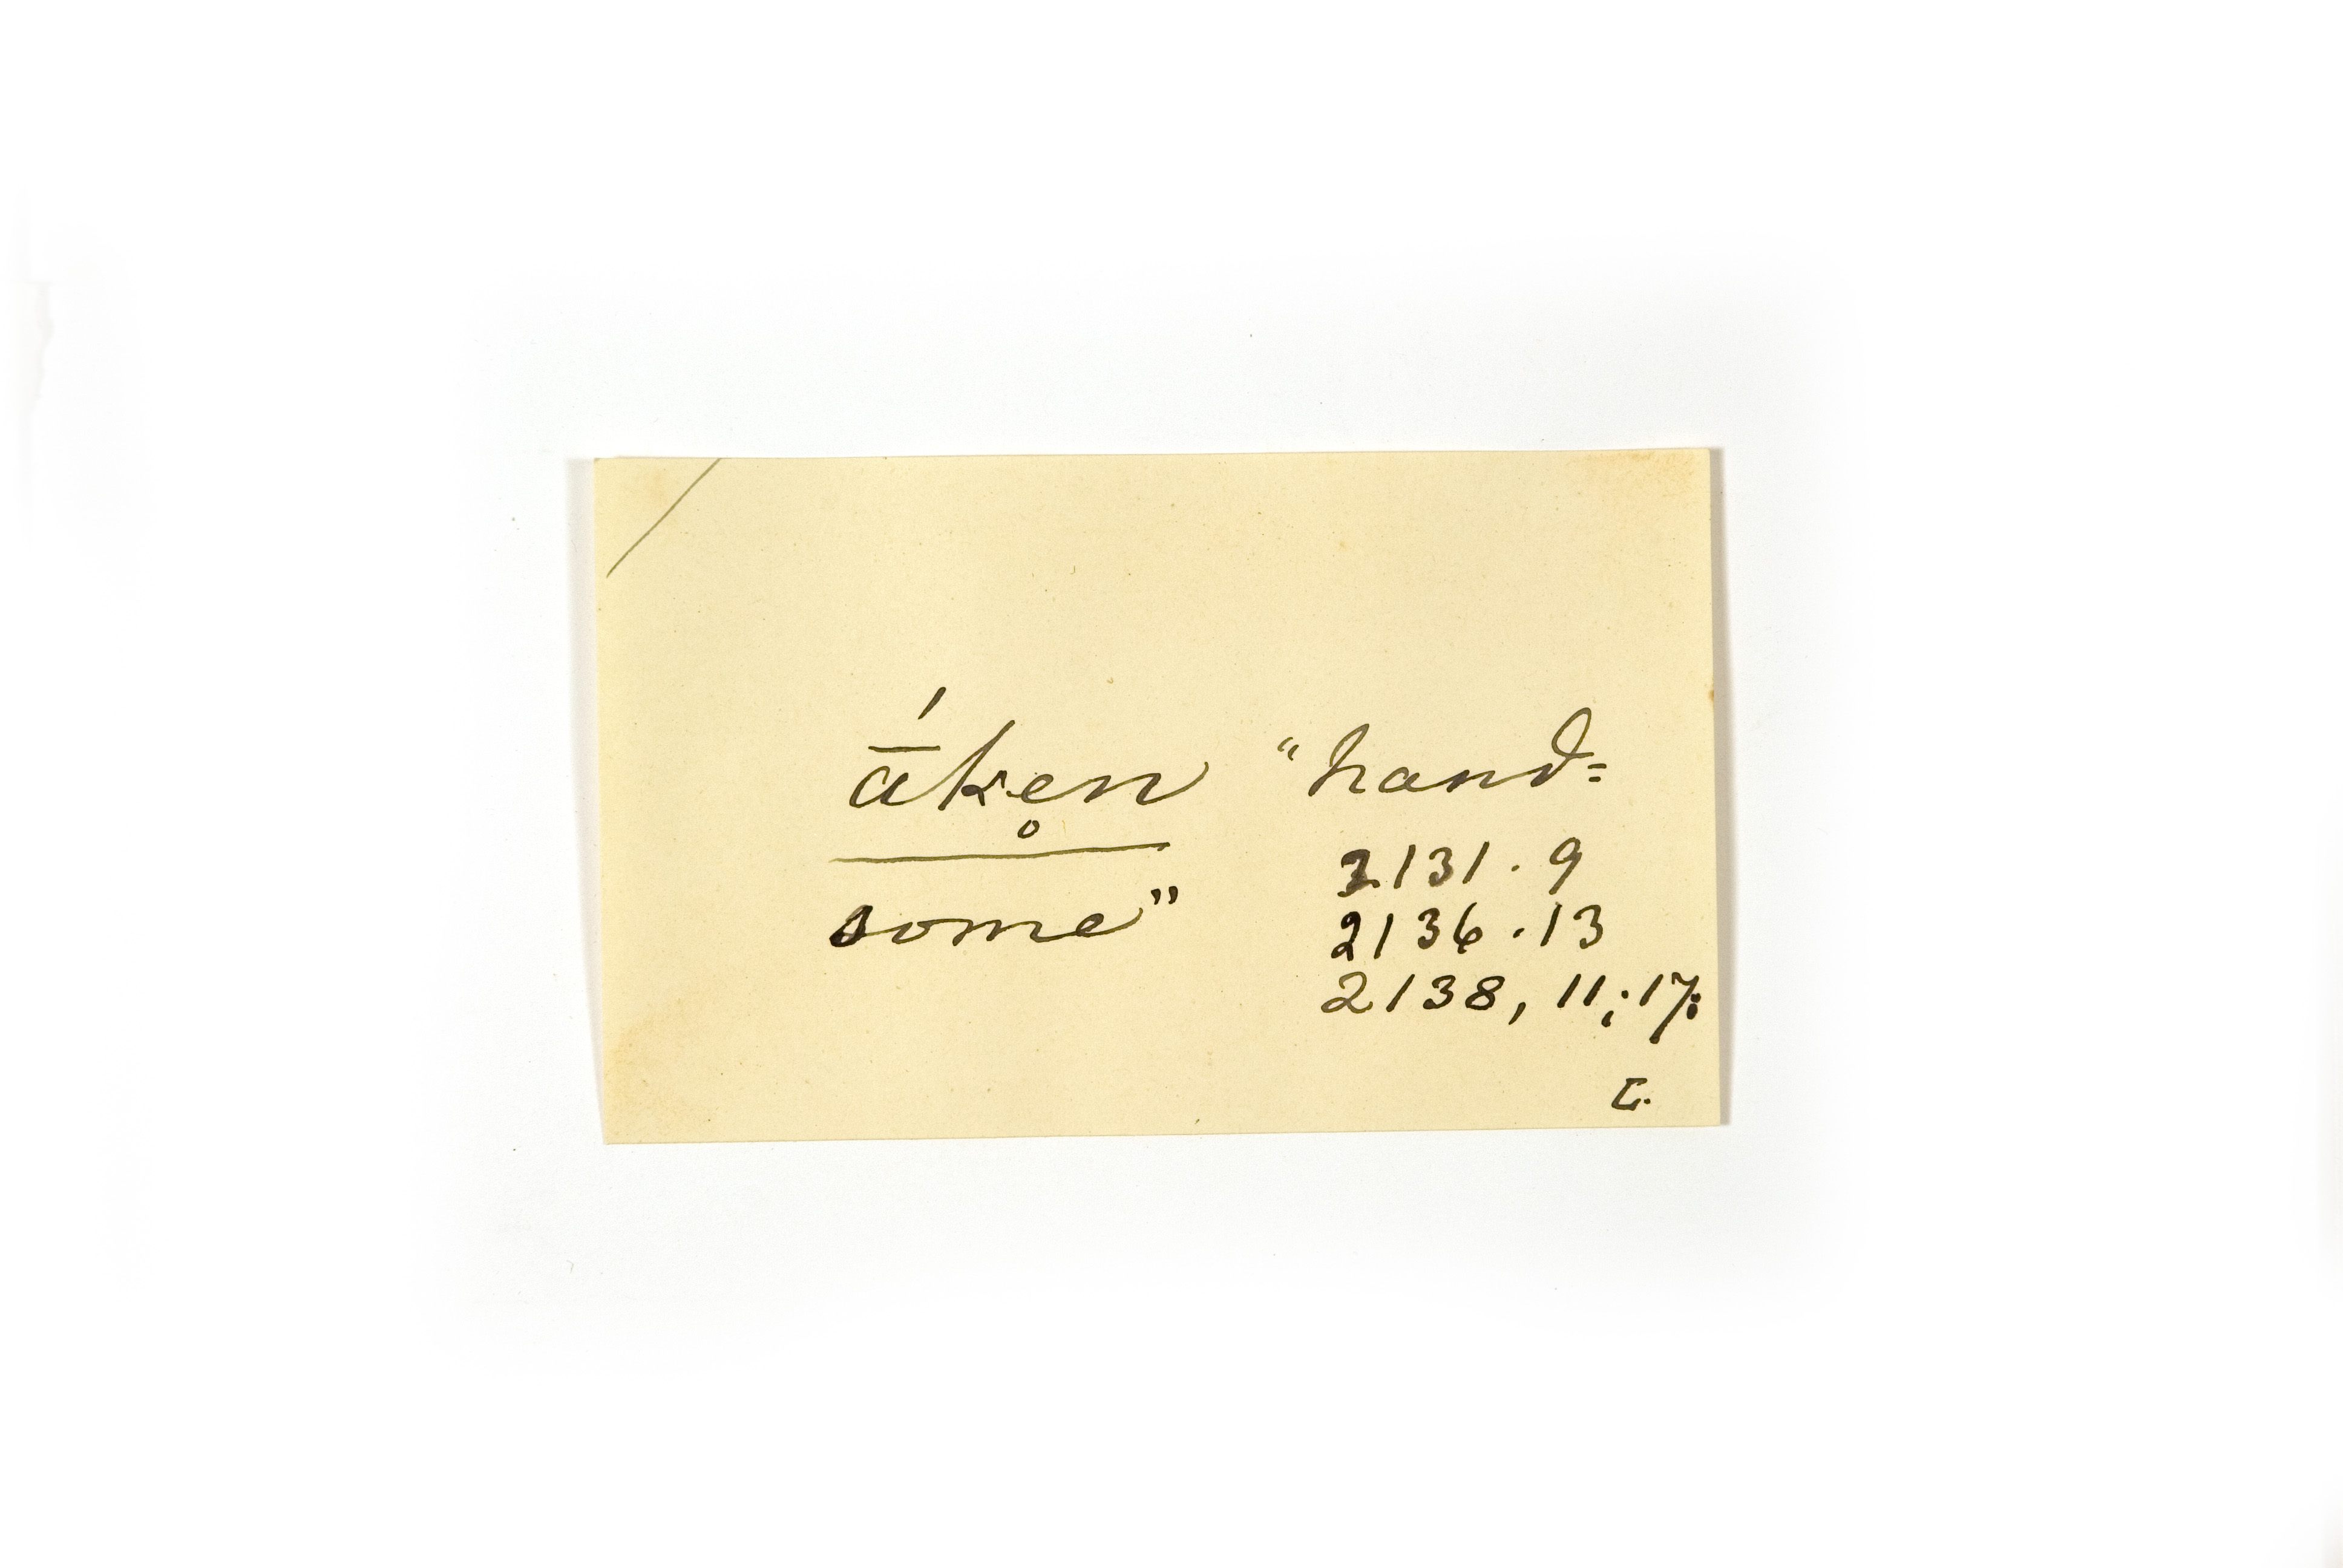 ā́ke̥n "hand=
some" 2131.9
2136.13
2138, 11; 17:
C.